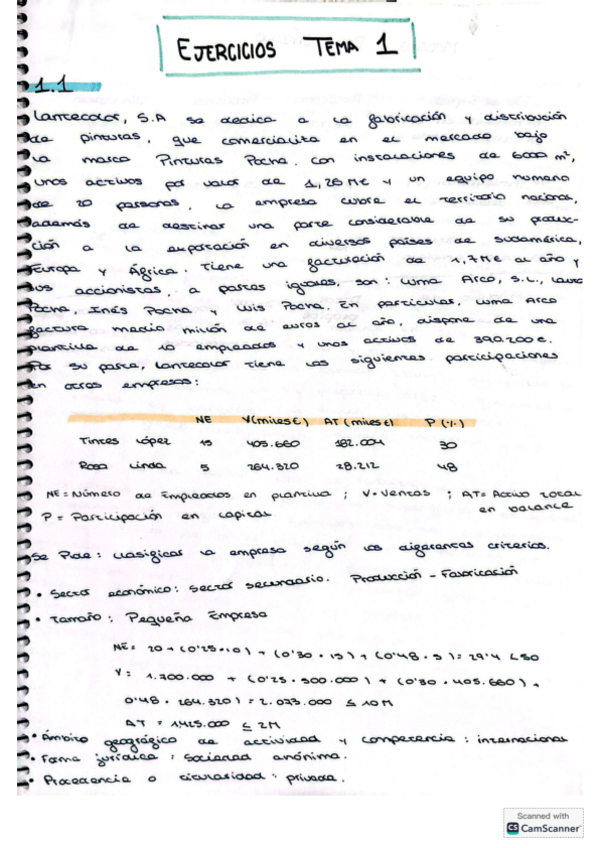 EJERCICIOS TEMA 1
1.1
Lantecolor, S.A se dedica a la fabricación y distribución
de pinturas, que comercializa en el mercado bajo
la marca Pinturas Pocna. Con instalaciones de 6000 m²,
unos activos por valor de 1,26M€ y un equipo humano
de 20 personas, la empresa cubre el territorio nacional,
además de destinar una parte considerable de su produc-
ción a la exportación en diversos países de sudamérica,
Europa y África. Tiene una facturación de 1,7M€ al año y
sus accionistas, a partes iguales, son: Luma Arco, S.L., Laura
Pocna, Inés Pocna y Luis Pocna. En particular, Luma Arco
factura medio millón de euros al año, dispone de una
plantilla de 10 empleados y unos activos de 390.200€.
Por su parte, Lantecolor tiene las siguientes participaciones
en otras empresas:
NE V(miles€) AT (miles€) P (%)
Tintes López 15 405.660 182.004 30
Rosa Linda 5 264.320 28.212 48
NE = Número de Empleados en plantilla ; V= Ventas ; AT= Activo total
en balance
P = Participación en capital
Se Pide: Clasificar la empresa según los diferentes criterios.
• Sector económico: Sector secundario. Producción - Fabricación
• Tamaño: Pequeña Empresa
NE = 20 + (0'25·10) + (0'30 · 15) + (0'48 · 5) = 29'4 < 50
V: 1.700.000 + (0'25 · 500.000) + (0'30 · 405.660) +
0'48 · 264.320) = 2.073.000 ≤ 10M
AT = 1425.000 ≤ 2M
• Ámbito geográfico de actividad y competencia: internacional
• Forma jurídica: Sociedad anónima.
• Procedencia o titularidad: privada.
Scanned with
CS CamScanner